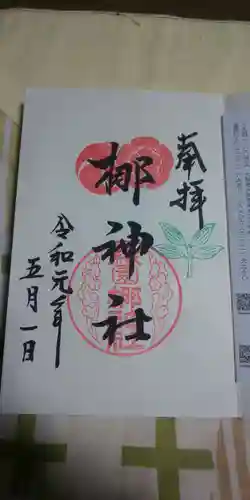 奉拝
梛神社
令和元年
五月一日